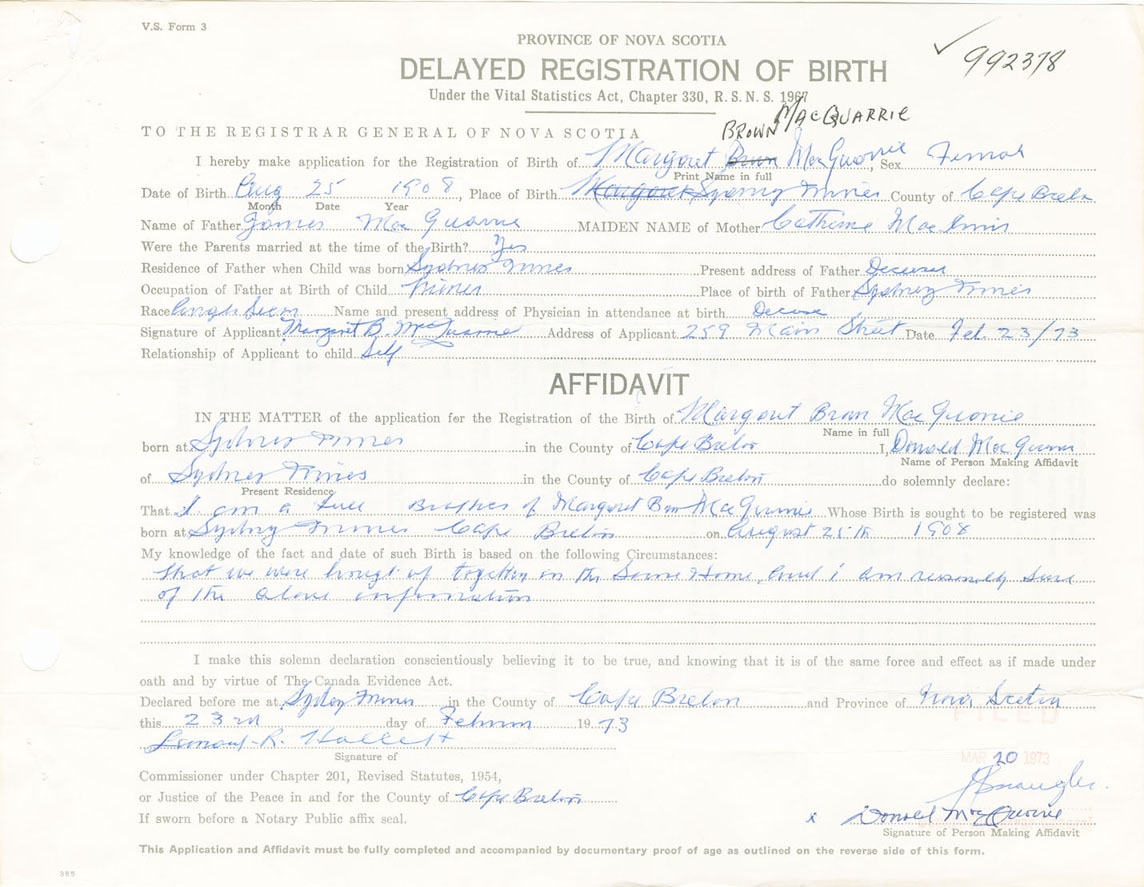 V.S. Form 3
PROVINCE OF NOVA SCOTIA
992378
DELAYED REGISTRATION OF BIRTH
Under the Vital Statistics Act, Chapter 330, R. S. N. S. 1967
BROWN MACQUARRIE
TO THE REGISTRAR GENERAL OF NOVA SCOTIA
I hereby make application for the Registration of Birth of Margaret Brown MacQuarrie, Sex Female
Print Name in full
Date of Birth Aug 25 1908, Place of Birth Margaret Sydney Mines County of Cape Breton
Month Date Year
Name of Father James MacQuarrie MAIDEN NAME of Mother Catherine MacInnis
Were the Parents married at the time of the Birth? Yes
Residence of Father when Child was born Sydney Mines Present address of Father Deceased
Occupation of Father at Birth of Child Miner Place of birth of Father Sydney Mines
Race Name and present address of Physician in attendance at birth Decease
Signature of Applicant Margaret B. MacQuarrie Address of Applicant 259 Main Street Date Feb. 23/73
Relationship of Applicant to child Self
AFFIDAVIT
IN THE MATTER of the application for the Registration of the Birth of Margaret Brown MacQuarrie
Name in full
born at Sydney Mines in the County of Cape Breton I, Donald MacQuarrie
Name of Person Making Affidavit
of Sydney Mines in the County of Cape Breton do solemnly declare:
Present Residence
That I am a full Brother of Margaret Brown MacQuarrie Whose Birth is sought to be registered was
born at Sydney Mines Cape Breton on August 25th 1908
My knowledge of the fact and date of such Birth is based on the following Circumstances:
that we were brought up together in the Same Home, and i am reasonably sure
of the above information
I make this solemn declaration conscientiously believing it to be true, and knowing that it is of the same force and effect as if made under
oath and by virtue of The Canada Evidence Act.
Declared before me at Sydney Mines in the County of Cape Breton and Province of Nova Scotia
this 23rd day of February 1973
FILED
R. Hallett
Signature of
MAR 20 1973
Commissioner under Chapter 201, Revised Statutes, 1954,
or Justice of the Peace in and for the County of Cape Breton
If sworn before a Notary Public affix seal.
x Donald MacQuarrie
Signature of Person Making Affidavit
This Application and Affidavit must be fully completed and accompanied by documentary proof of age as outlined on the reverse side of this form.
385